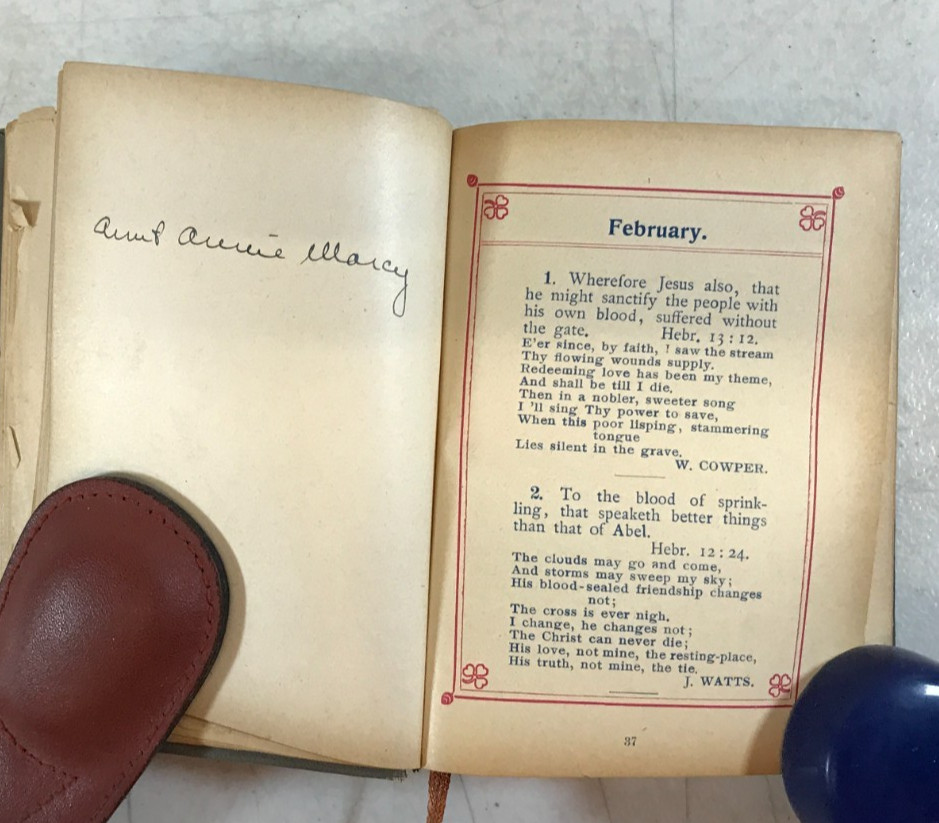 Aunt Annie Marcy
February.
1. Wherefore Jesus also, that
he might sanctify the people with
his own blood, suffered without
the gate. Hebr. 13 : 12.
E'er since, by faith, I saw the stream
Thy flowing wounds supply.
Redeeming love has been my theme,
And shall be till I die.
Then in a nobler, sweeter song
I 'll sing Thy power to save,
When this poor lisping, stammering
tongue
Lies silent in the grave.
W. COWPER.
2. To the blood of sprink-
ling, that speaketh better things
than that of Abel.
Hebr. 12 : 24.
The clouds may go and come,
And storms may sweep my sky;
His blood-sealed friendship changes
not;
The cross is ever nigh.
I change, he changes not;
The Christ can never die;
His love, not mine, the resting-place,
His truth, not mine, the tie.
J. WATTS.
37